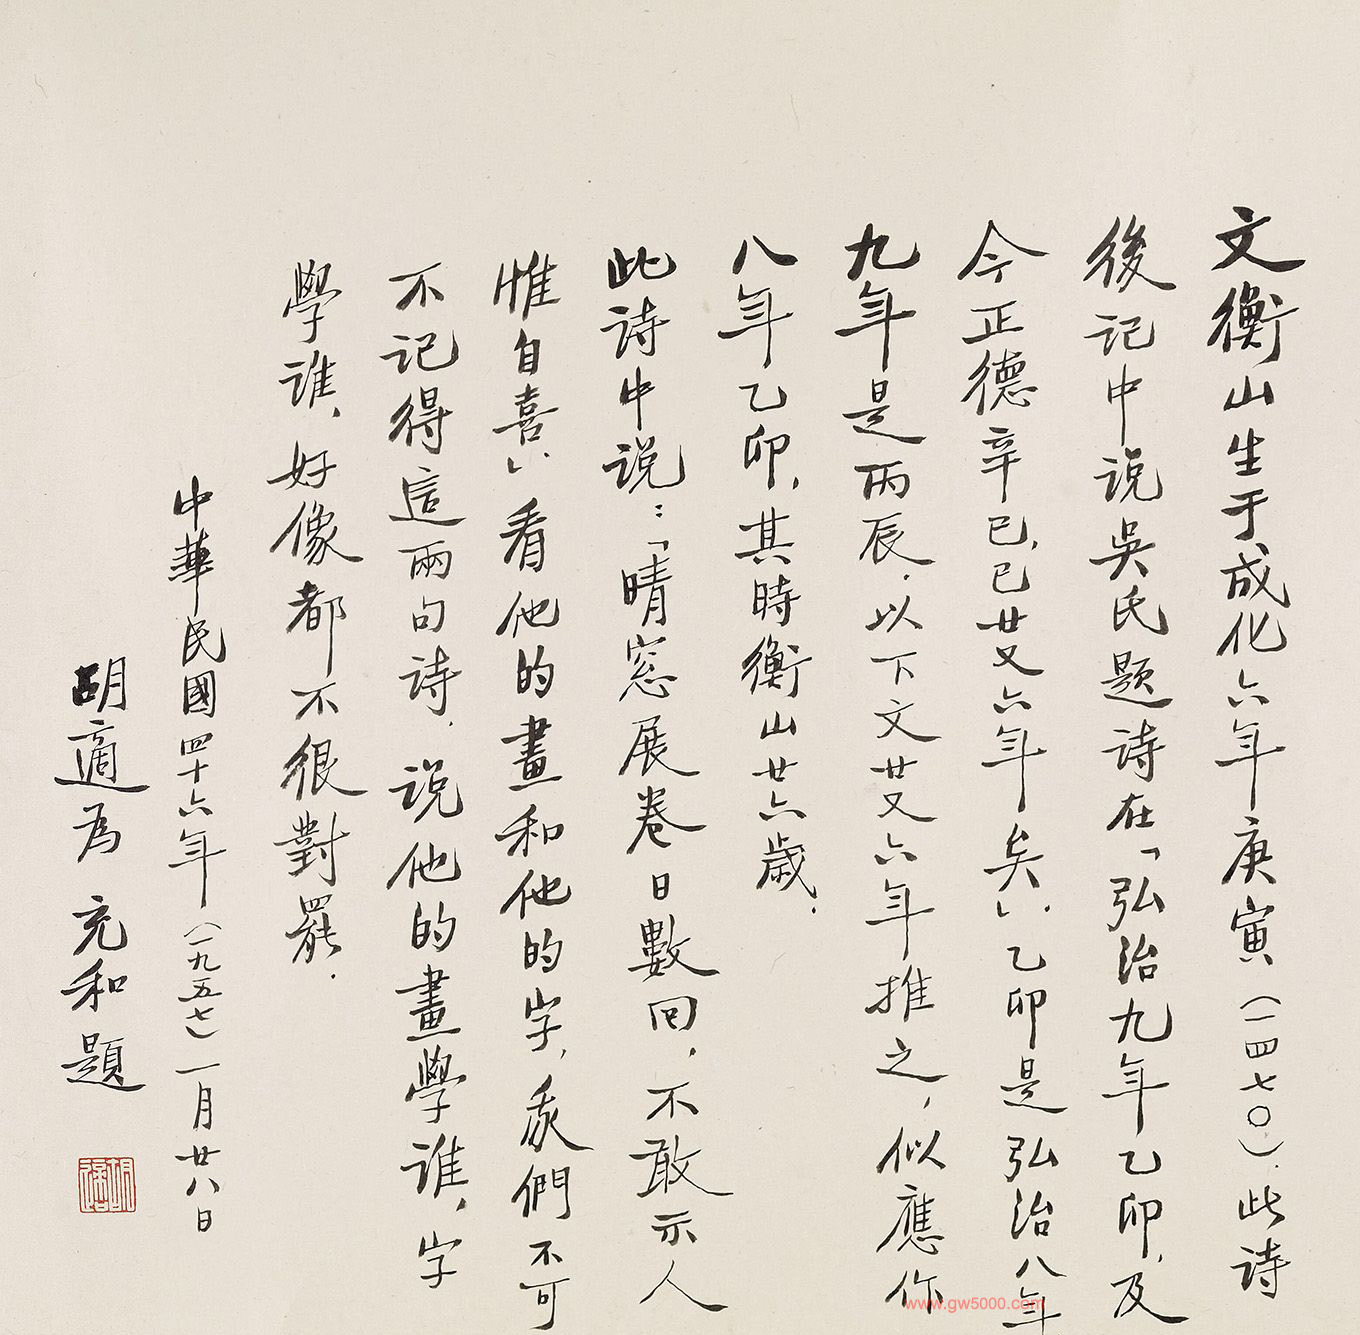 文衡山生于成化六年庚寅（一四七〇）．此詩
後記中說吳氏題詩在「弘治九年乙卯，及
今正德辛巳，已廿又六年矣」．乙卯是弘治八年
九年是丙辰．以下文廿又六年推之，似應作
八年乙卯，其時衡山廿六歲．
此詩中說：「晴窓展卷日數回，不敢示人
惟自喜」．看他的畫和他的字，我們不可
不記得這兩句詩．說他的畫學誰，字
學誰，好像都不很對罷．
中華民國四十六年（一九五七）一月廿八日
胡適為 充和題
胡適
www.gw5000.com